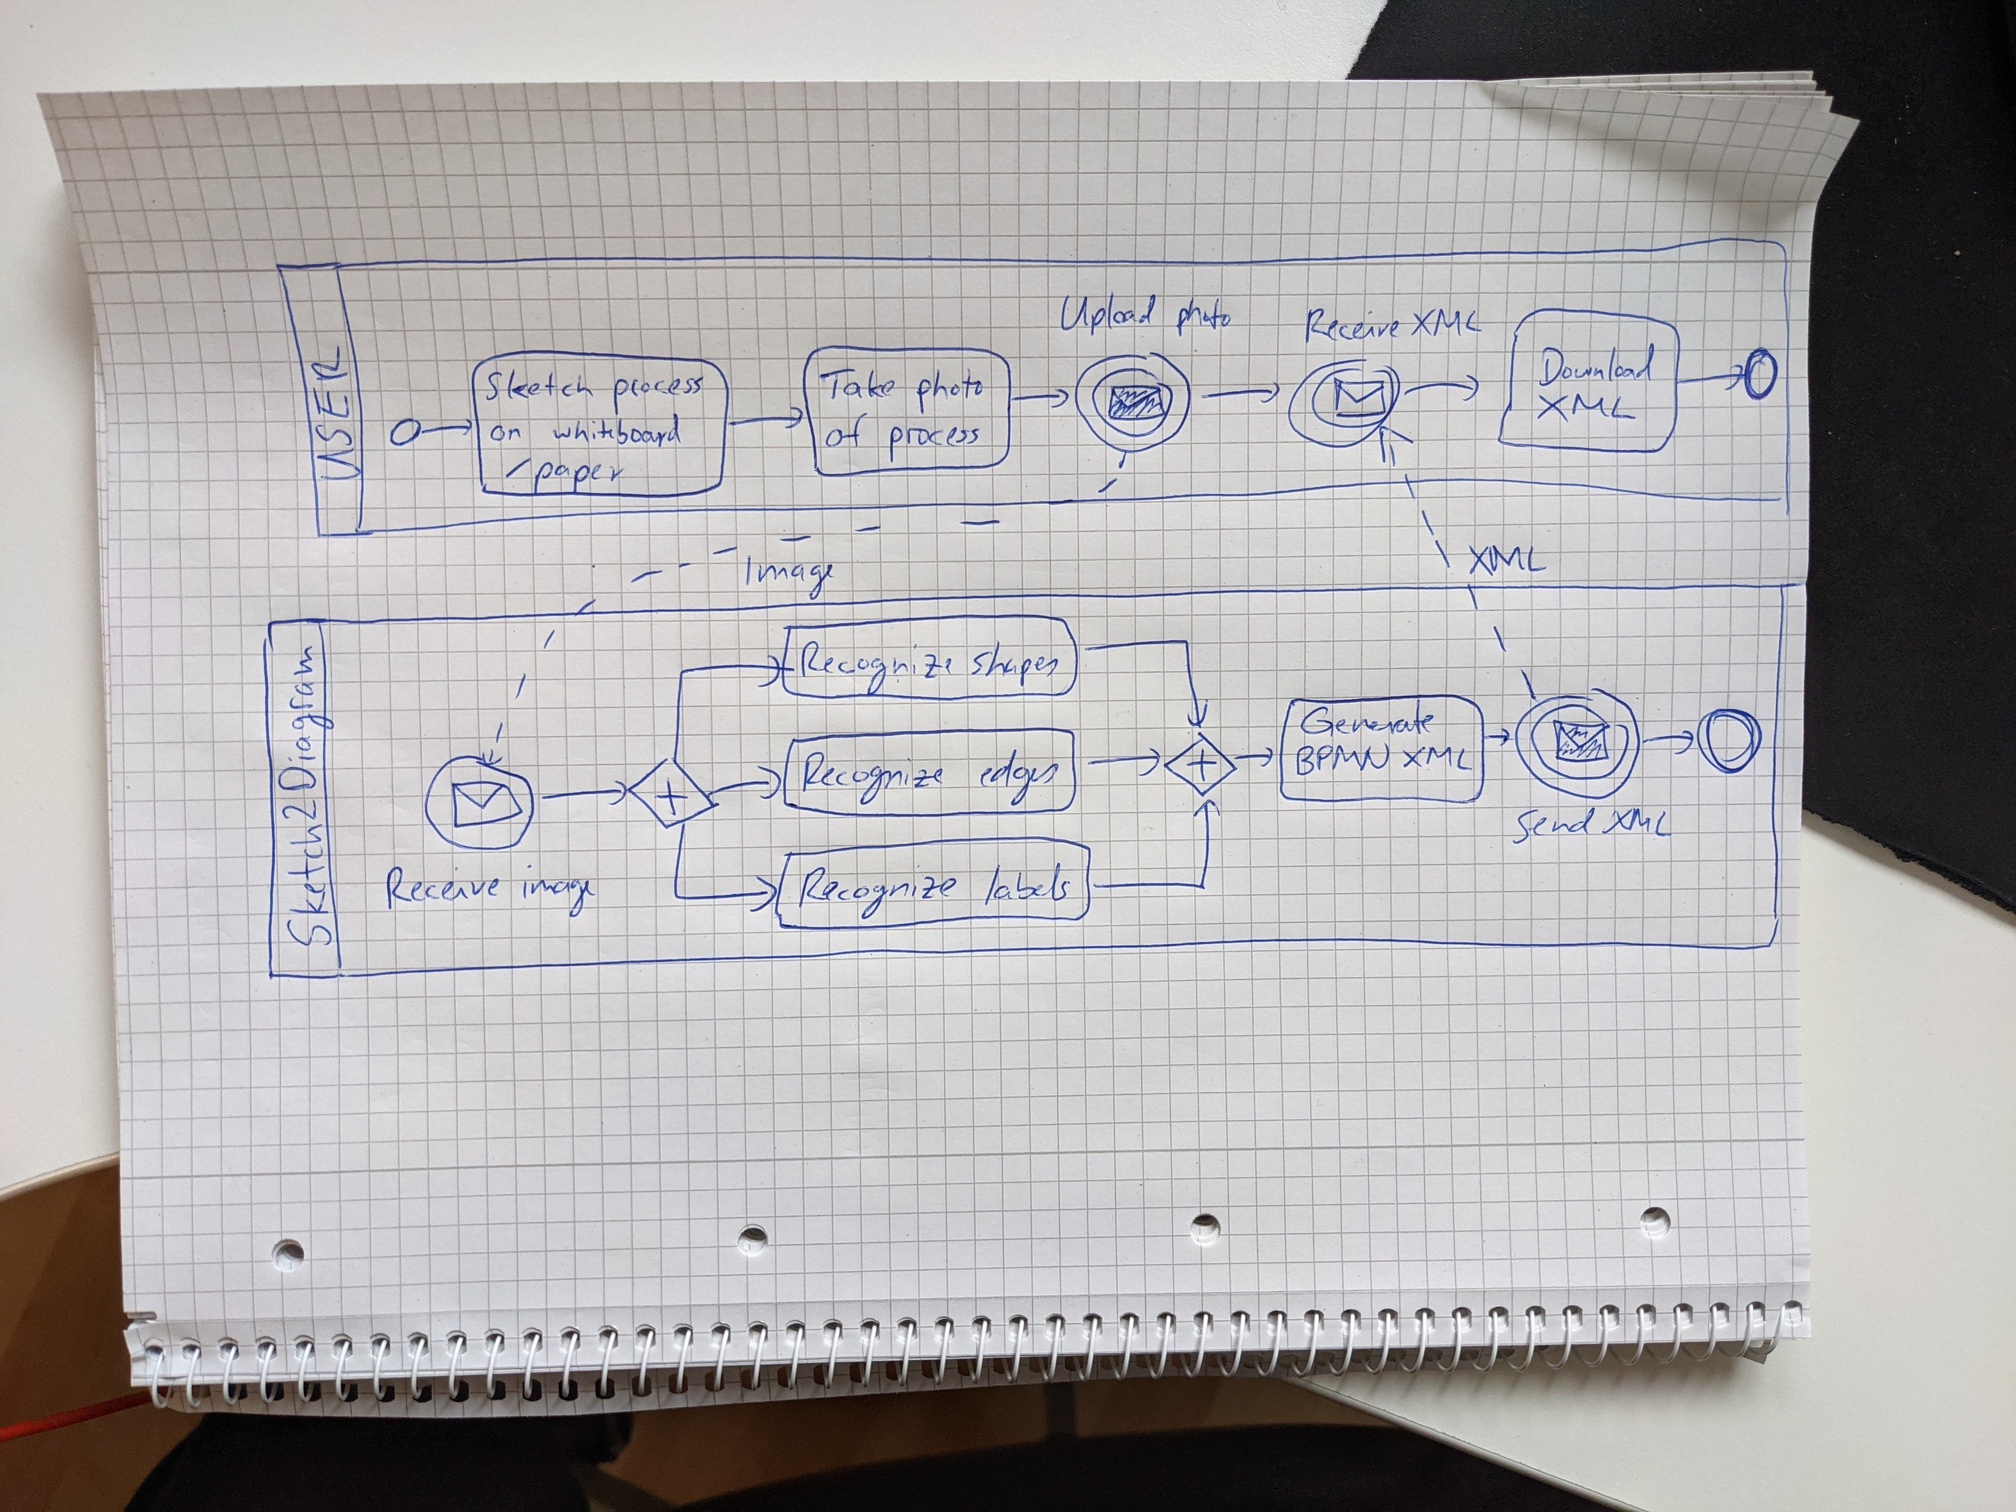 USER
Sketch process
on whiteboard
/paper
Take photo
of process
Upload photo
Receive XML
Download
XML
Image
XML
Sketch2Diagram
Receive image
Recognize shapes
Recognize edges
Recognize labels
Generate
BPMN XML
Send XML